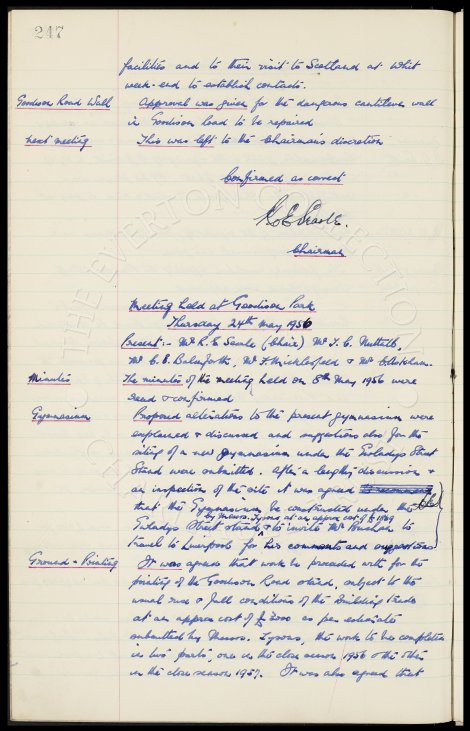 247
facilities and to their visit to Scotland at Whit
week-end to establish contacts.
Goodison Road Wall
Approval was given for the dangerous cantilever wall
in Goodison Road to be repaired
next meeting
This was left to the Chairman's discretion
Confirmed as correct
R E Searle.
Chairman
Meeting held at Goodison Park
Thursday 24th May 1956
Present :- Mr R. E Searle (Chair) Mr T. C. Nuttall,
Mr C. E. Balmforth, Mr F. Micklesfield &
Minutes
The minutes of the meeting held on 8th May 1956 were
read & confirmed
Gymnasium
Proposed alterations to the present gymnasium were
explained & discussed and suggestions also for the
siting of a new Gymnasium under the Gwladys Street
Stand were submitted. After a lengthy discussion &
an inspection of the site it was agreed
that the Gymnasium be constructed under the
by Messrs. Tysons at an approx cost of £
Gwladys Street stand & to invite Mr Buchan to
travel to Liverpool for his comments and suggestions
Ground & Painting
It was agreed that work be proceeded with for the
painting of the Goodison Road stand, subject to the
usual rise & fall conditions of the Building trade
at an approx cost of £ 2000 as per estimate
submitted by Messrs. Tysons, the work to be completed
in two parts, one in the close season 1956 & the other
in the close season 1957. It was also agreed that
THE EVERTON COLLECTION